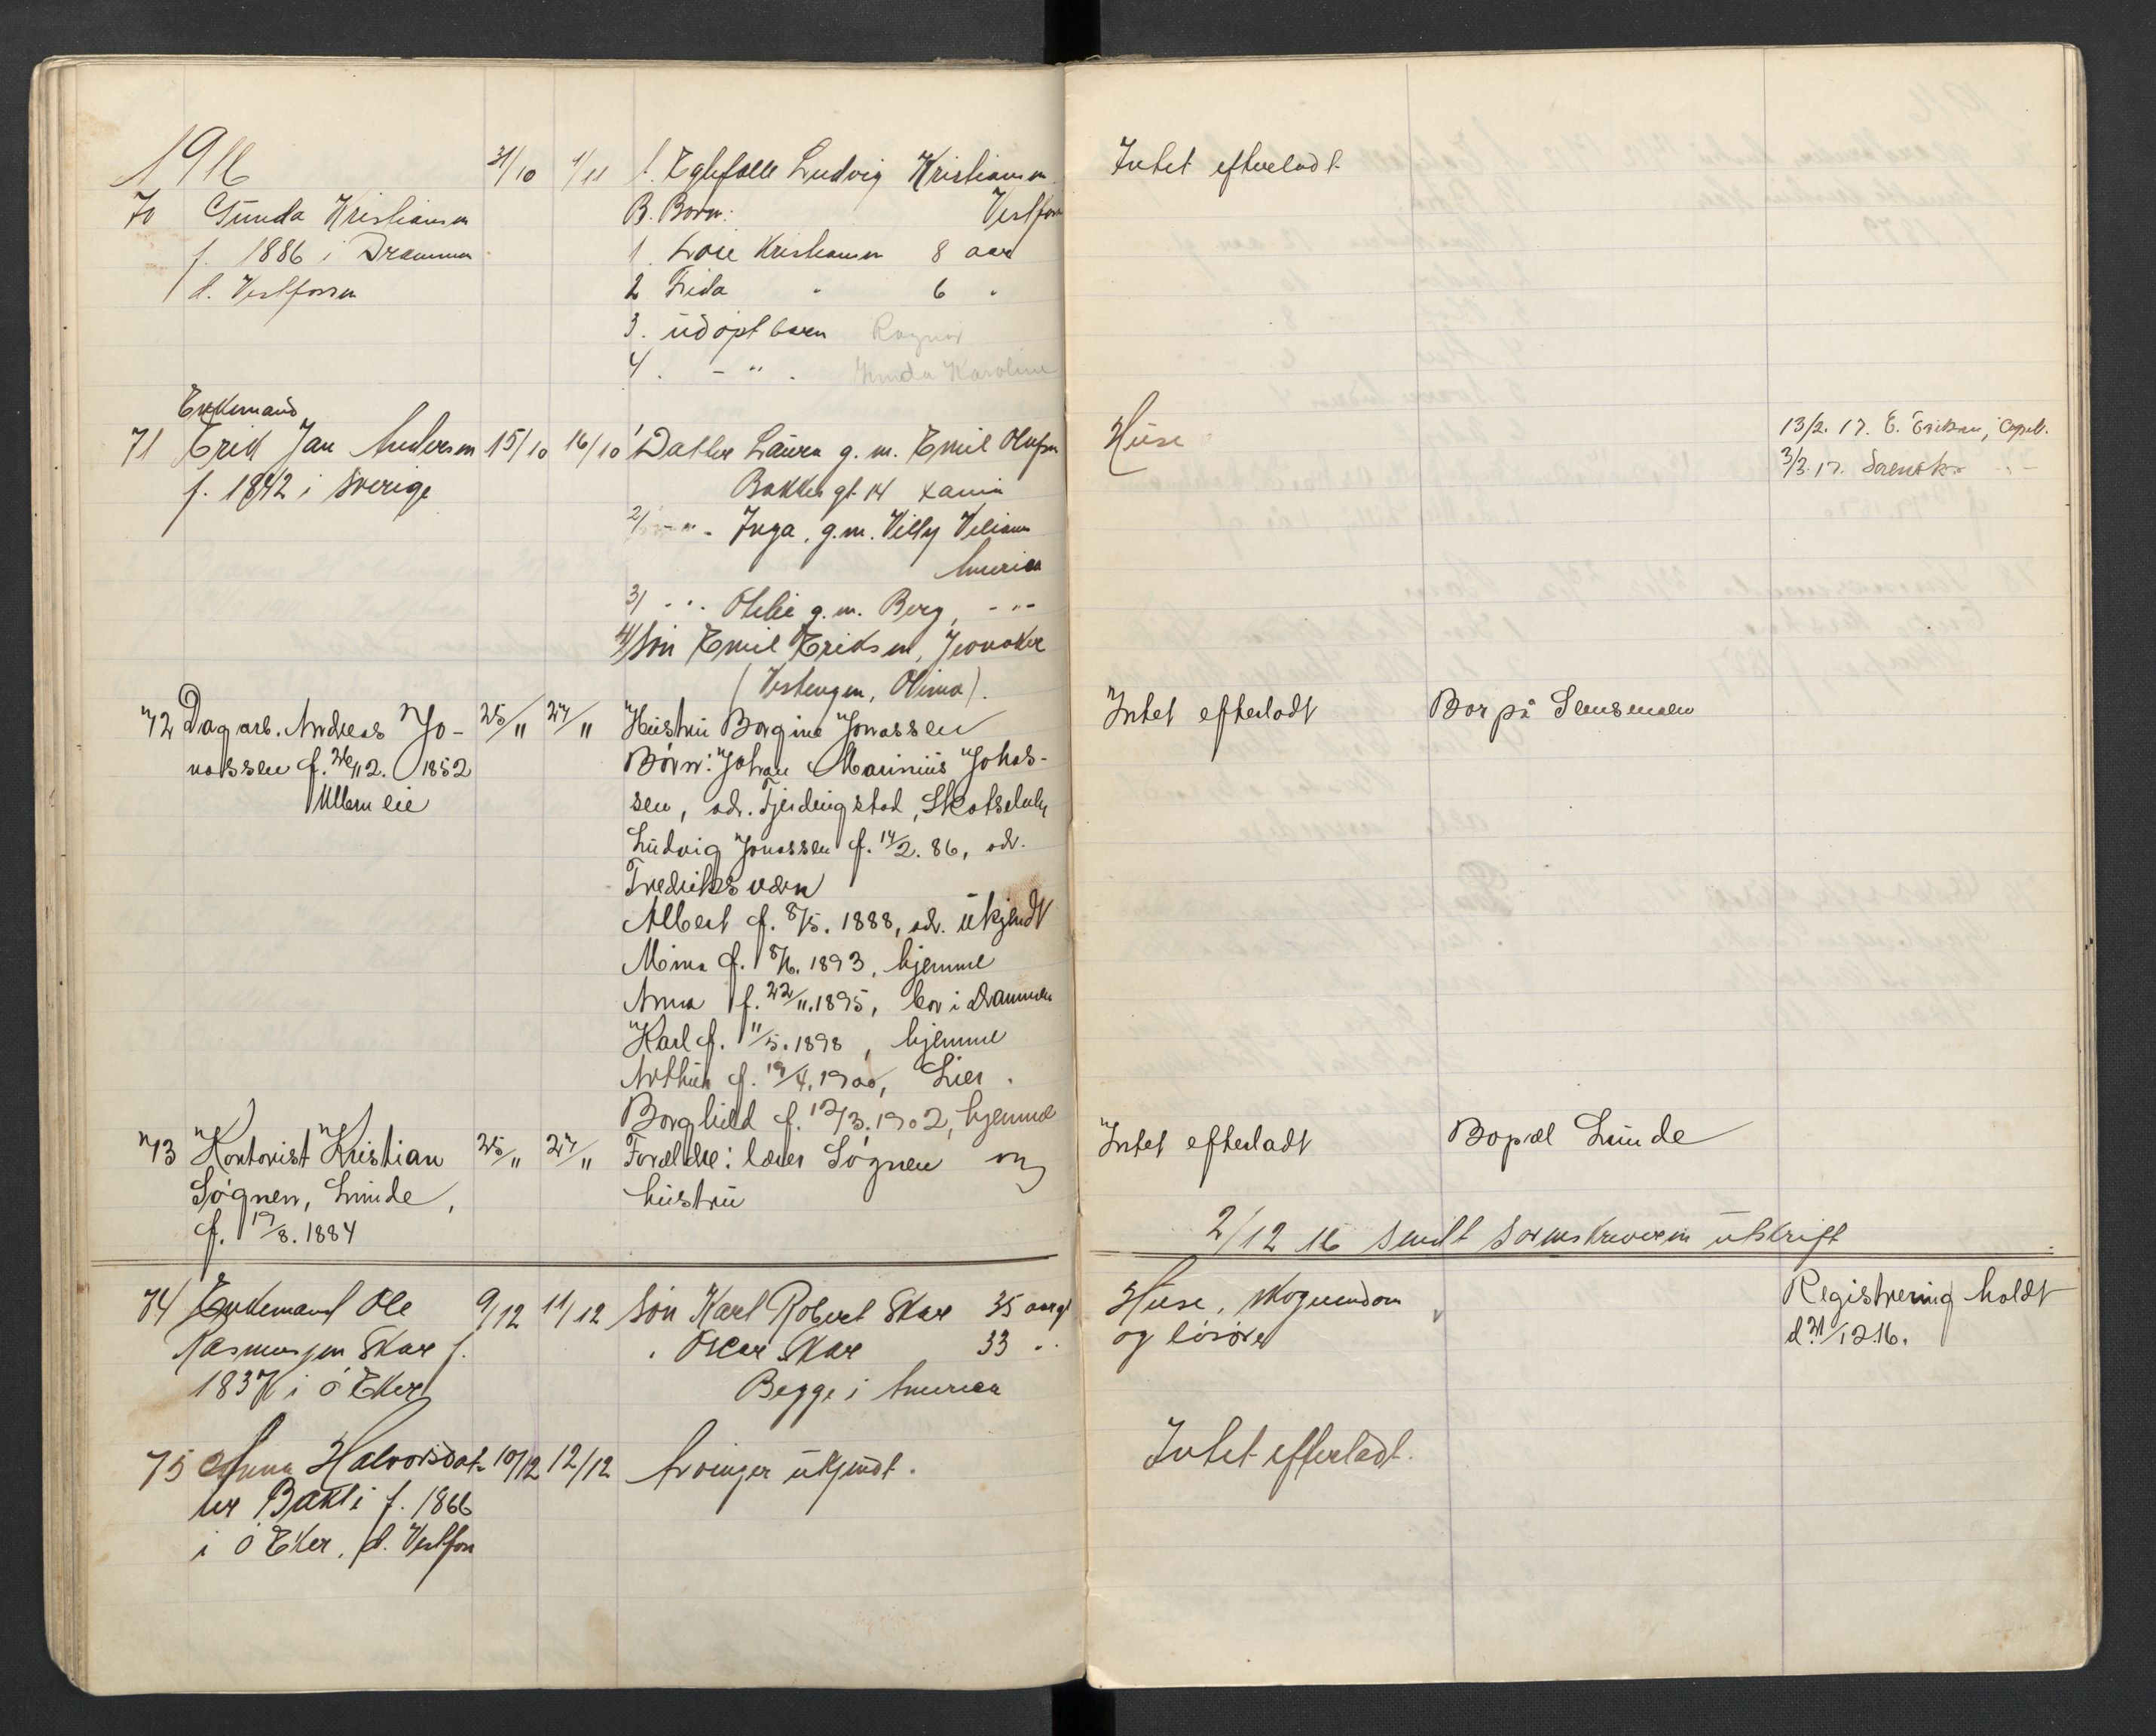 1916 31/10 1/11 1. Egtefelle Ludvig Kristiansen Intet efterladt
70 Gunda Kristiansen B. Born: Vestfossen
f. 1886 i Drammen 1. Love Kristiansen 8 aar
d. Vestfossen 2 Frida " 6 "
3. udöpt barn Ragnar
4. - " - Gunda Karoline
Enkemand
71 Erik Jan Andersen 15/10 16/10 1 Datter Laura g. m. Emil Olafsen Huse 13/2. 17. E. Eriksen,
f. 1842 i Sverige Bakkegt 14 3/3. 17. Sorensk.
2/ - " - Inga, g.m. Villy Viliams
America
3/ - " - Othilie g. m. Berg, - " -
4/ Sön Emil Eriksen, Jevnaker
(Vestengen, Olimo).
72 Dagarb. Andreas Jo- 25/11 27/11 Hustru Borgine Jonassen Intet efterladt Bor på Semsmoen
nassen f. 26/12. 1852 Börn: Johan Marinius Johas-
Ullern eie sen, adr. Fjerdingstad, Skotselv
Ludvig Jonassen f. 14/2. 86, adr.
Fredriksværn
Albert f. 8/5. 1888, adr. ukjendt
Mina f. 8/6. 1893, hjemme
Anna f. 22/11. 1895, bor i Drammen
Karl f. 11/5. 1898, hjemme
Arthur f. 19/4. 1900, Lier.
Borghild f. 12/3. 1902, hjemme
73 Kontorist Kristian 25/11 27/11 Forældre: lærer Sögnen og Intet efterladt Bopæl Lunde
Sögnen, Lunde, hustru
f. 19/8. 1884
2/12 16 sendt sorenskriveren utskrift
74 Enkemand Ole 9/12 11/12 Sön Karl Robert Skar 35 aar gl Huse, skogeiendom Registrering holdt
Rasmussen Skar f. " Oscar Skar 33 " og lösöre d. 21/12 16.
1837 i ö Eker Begge i America
75 Anna Halvorsdat- 10/12 12/12 Arvinger ukjendt. Intet efterladt.
ter Bakli f. 1866
i ö Eker, d. Vestfos